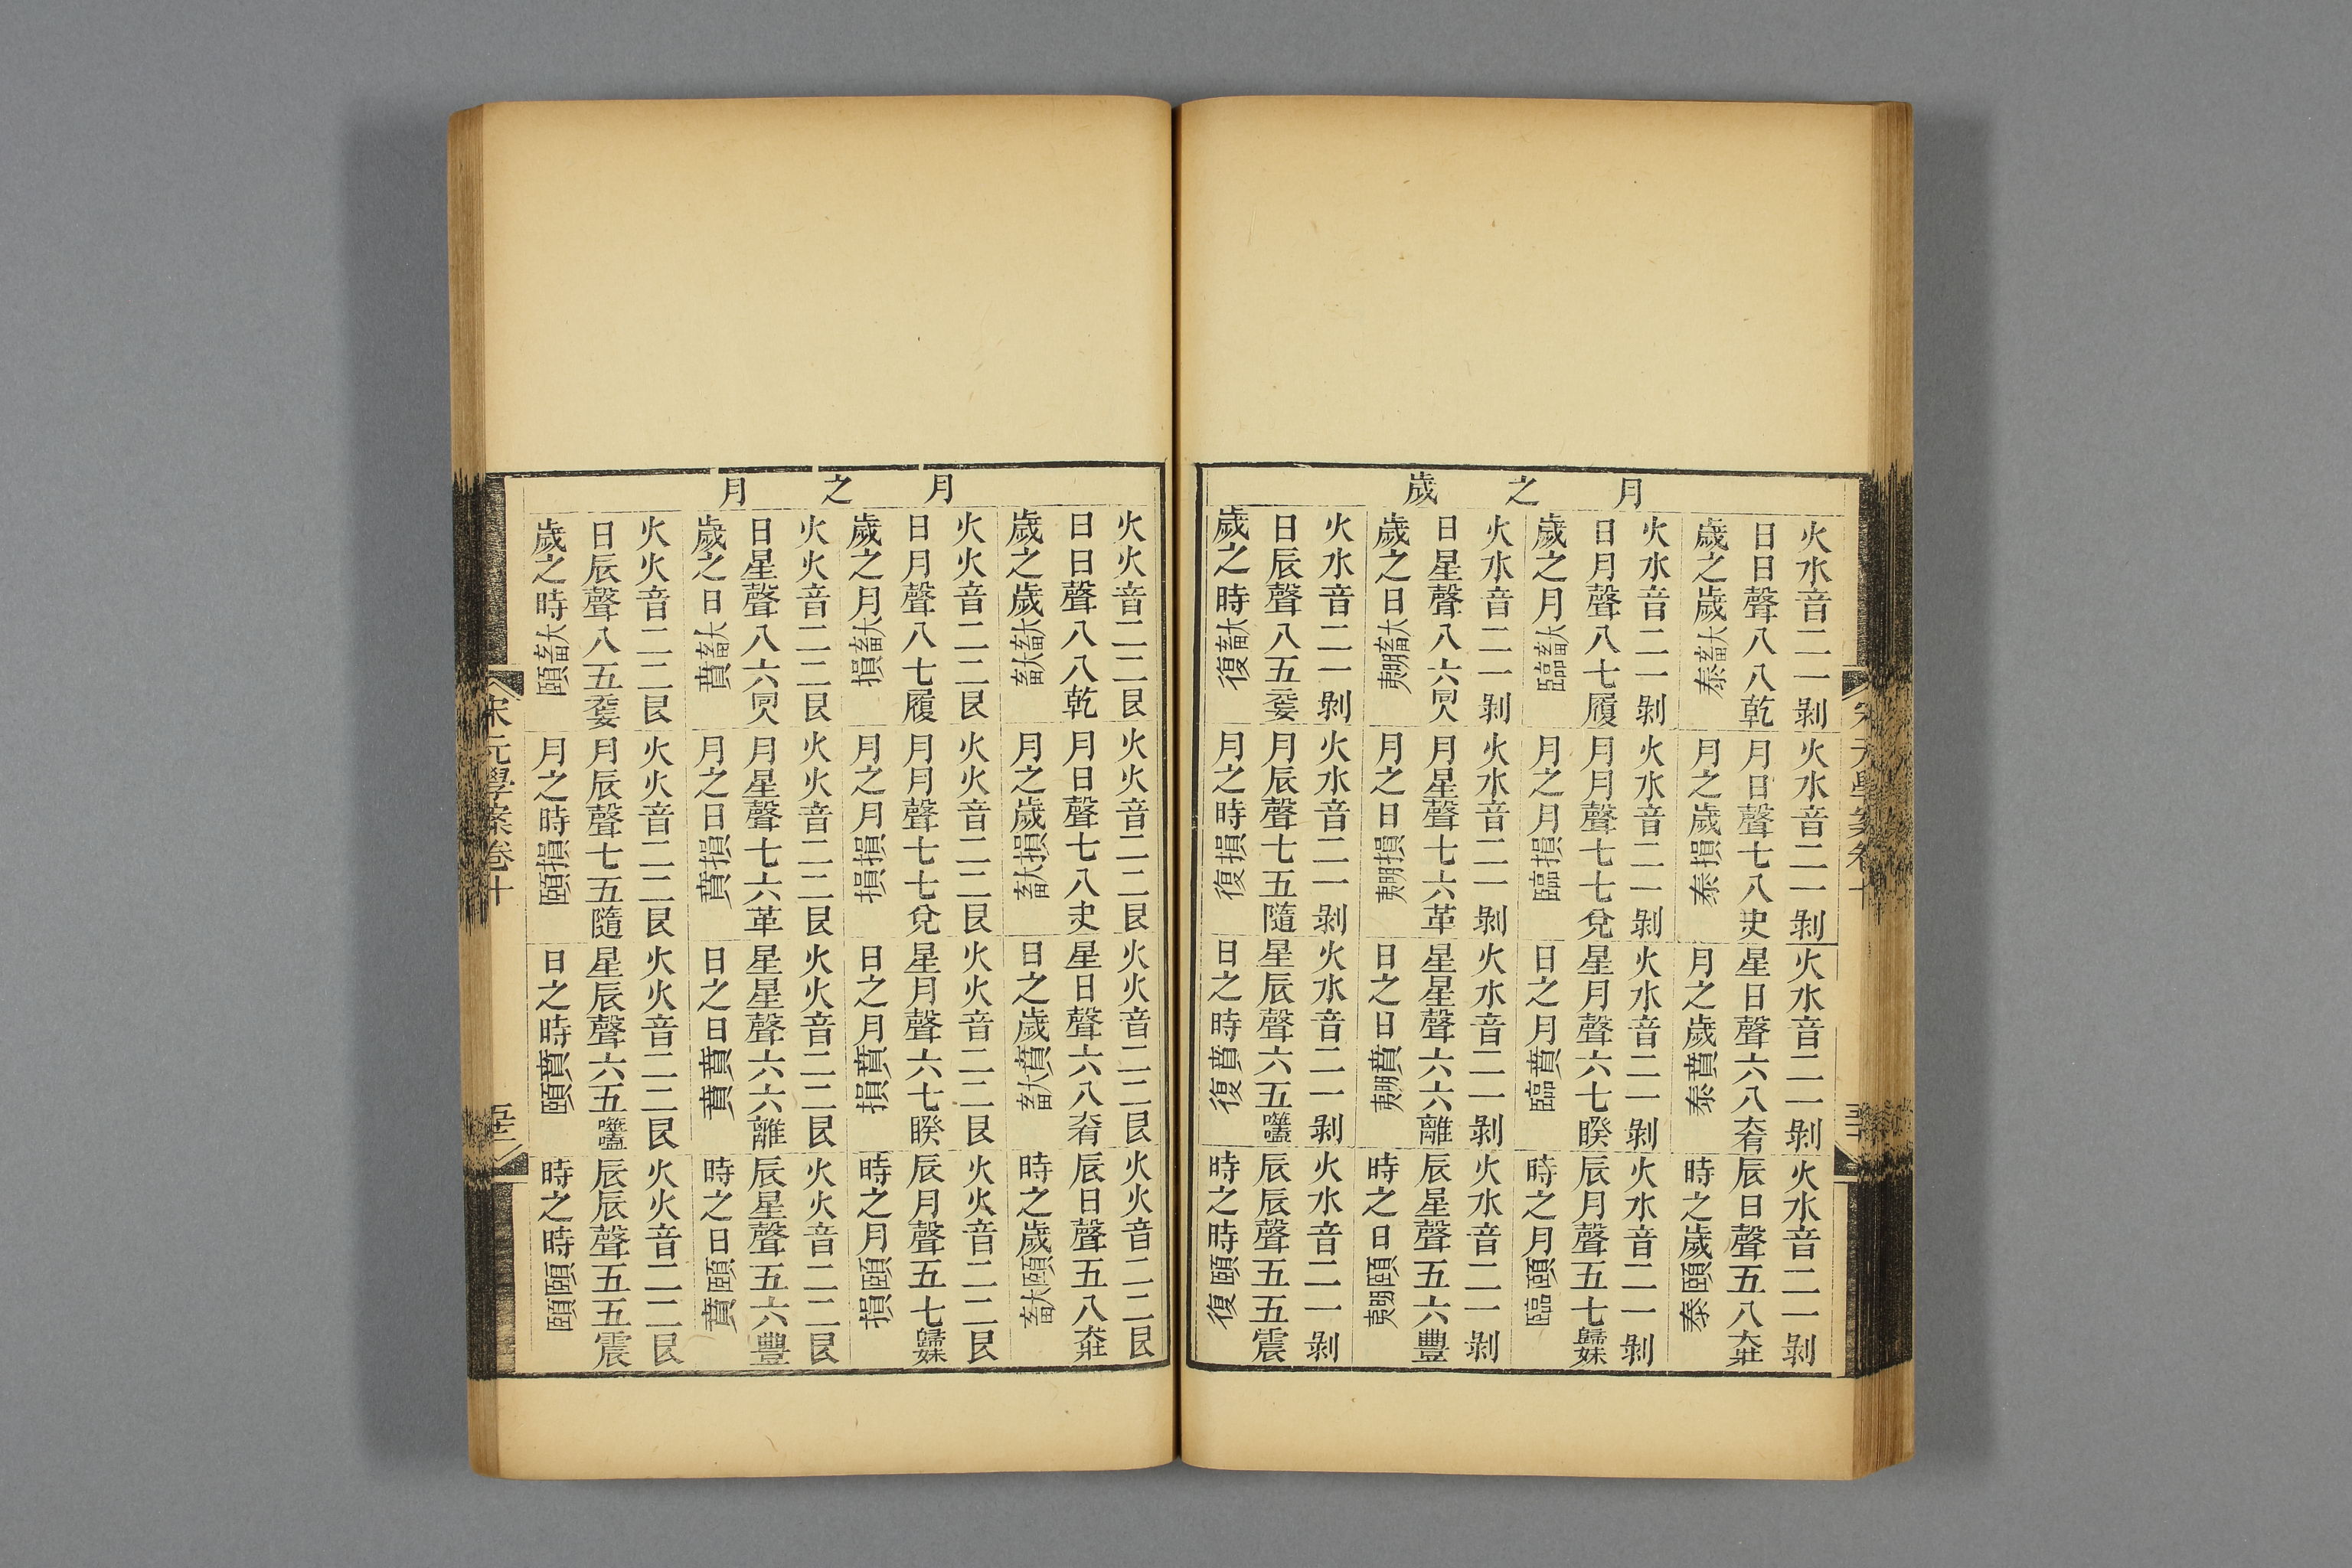 月之歲
火水音二一剝 火水音二一剝 火水音二一剝 火水音二一剝
日日聲八八乾 月日聲七八夬 星日聲六八大有 辰日聲五八大壯
歲之歲大畜泰 月之歲損泰 月之歲賁泰 時之歲頤泰
火水音二一剝 火水音二一剝 火水音二一剝 火水音二一剝
日月聲八七履 月月聲七七兌 星月聲六七睽 辰月聲五七歸妹
歲之月大畜臨 月之月損臨 日之月賁臨 時之月頤臨
火水音二一剝 火水音二一剝 火水音二一剝 火水音二一剝
日星聲八六同人 月星聲七六革 星星聲六六離 辰星聲五六豐
歲之日大畜明夷 月之日損明夷 日之日賁明夷 時之日頤明夷
火水音二一剝 火水音二一剝 火水音二一剝 火水音二一剝
日辰聲八五无妄 月辰聲七五隨 星辰聲六五噬嗑 辰辰聲五五震
歲之時大畜復 月之時損復 日之時賁復 時之時頤復
月之月
火火音二二艮 火火音二二艮 火火音二二艮 火火音二二艮
日日聲八八乾 月日聲七八夬 星日聲六八大有 辰日聲五八大壯
歲之歲大畜大畜 月之歲損大畜 日之歲賁大畜 時之歲頤大畜
火火音二二艮 火火音二二艮 火火音二二艮 火火音二二艮
日月聲八七履 月月聲七七兌 星月聲六七睽 辰月聲五七歸妹
歲之月大畜損 月之月損損 日之月賁損 時之月頤損
火火音二二艮 火火音二二艮 火火音二二艮 火火音二二艮
日星聲八六同人 月星聲七六革 星星聲六六離 辰星聲五六豐
歲之日大畜賁 月之日損賁 日之日賁賁 時之日頤賁
火火音二二艮 火火音二二艮 火火音二二艮 火火音二二艮
日辰聲八五无妄 月辰聲七五隨 星辰聲六五噬嗑 辰辰聲五五震
歲之時大畜頤 月之時損頤 日之時賁頤 時之時頤頤
宋元學案卷十